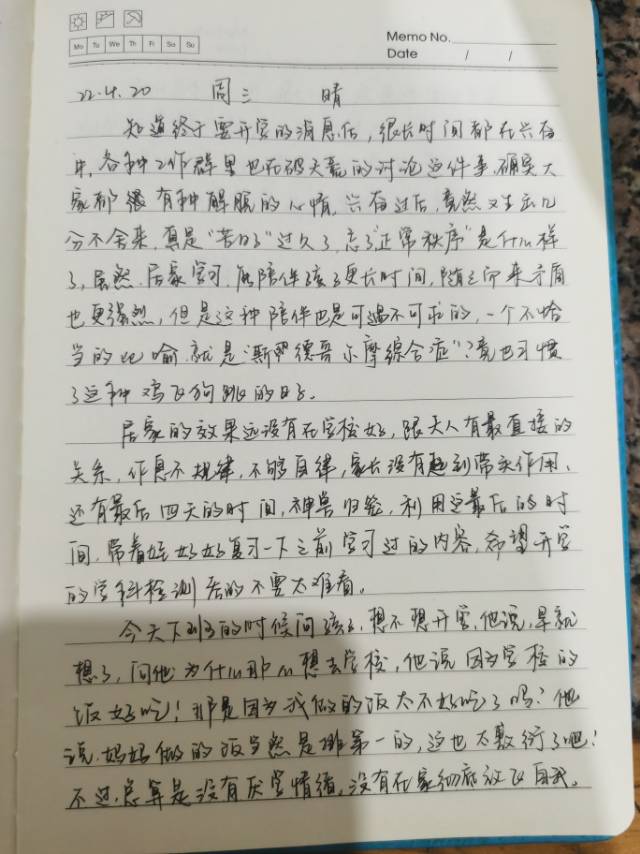 Mo Tu We Th Fr Sa Su
Memo No.
Date / /
22.4.20 周三 晴
知道终于要开学的消息后,很长时间都在兴奋
中,各种工作群里也在破天荒的讨论这件事,确实大
家都很有种解脱的心情,兴奋过后,竟然又生出几
分不舍来,真是“苦日子”过久了,忘了“正常秩序”是什么样
了,虽然居家学习,能陪伴孩子更长时间,随之而来矛盾
也更强烈,但是这种陪伴也是可遇不可求的,一个不恰
当的比喻就是“斯德哥尔摩综合症”?竟也习惯
了这种鸡飞狗跳的日子。
居家的效果还没有在学校好,跟大人有最直接的
关系,作息不规律,不够自律,家长没有起到带头作用,
还有最后四天的时间,神兽归笼,利用这最后的时
间,带着娃好好复习一下之前学习过的内容,希望开学
的学科检测后的不要太难看。
今天下班的时候问孩子,想不想开学,他说,早就
想了,问他为什么那么想去学校,他说因为学校的
饭好吃!那是因为我做的饭太不好吃了吗?他
说,妈妈做的饭当然是排第一的,这也太敷衍了吧!
不过,总算是没有厌学情绪,没有在家彻底放飞自我。